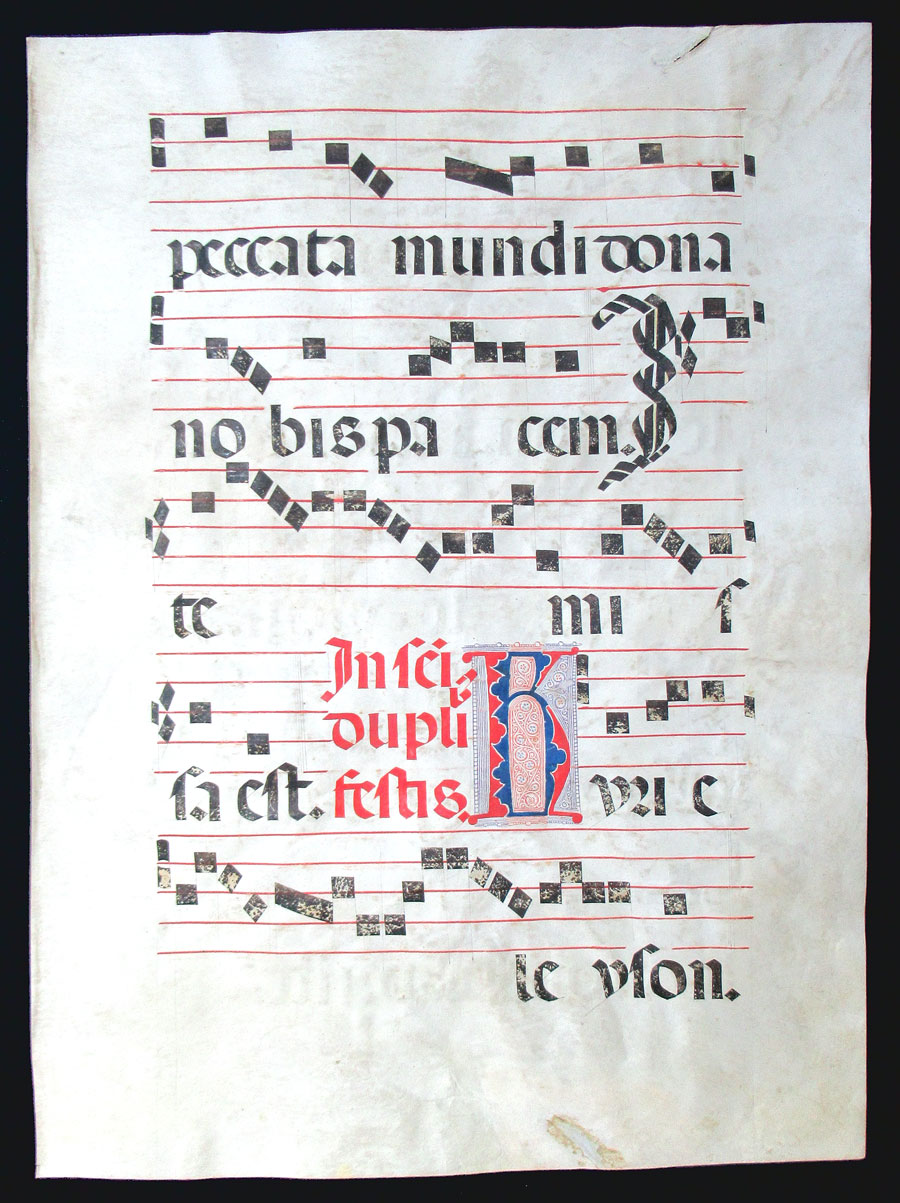 peccata mundi dona
no bis pa cem. I
te mi s
In sci
dupli
sa est. festis. K yri e
le yson.